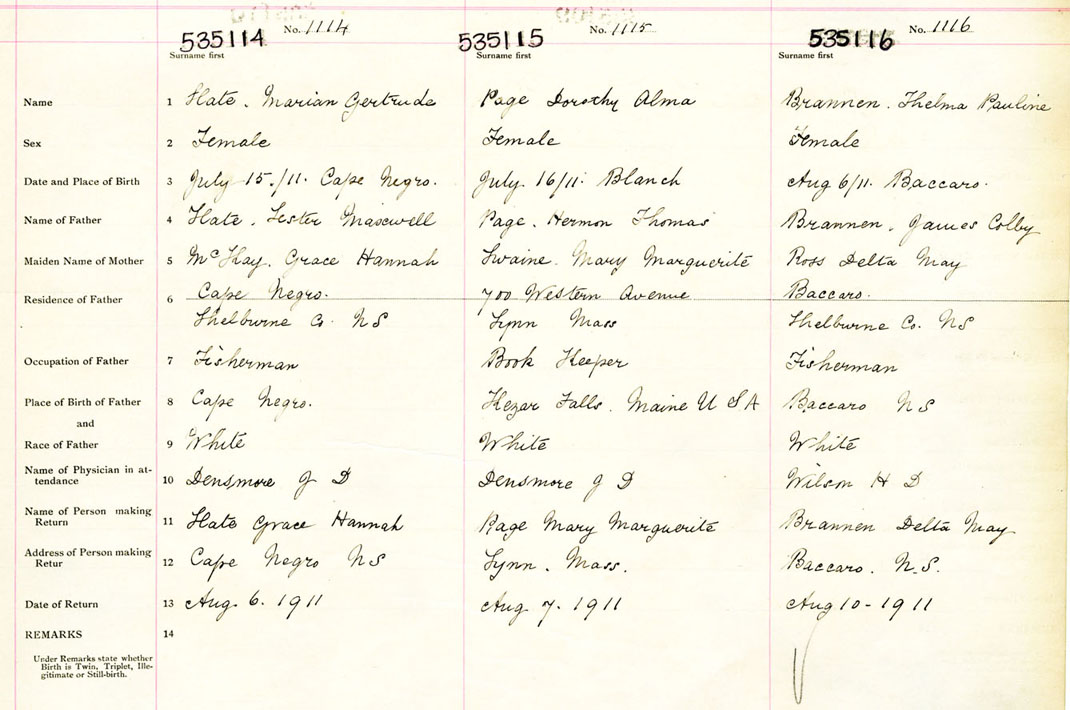 535114 No. 1114 535115 No. 1115 535116 No. 1116
Surname first Surname first Surname first
Name 1 Slate. Marian Gertrude Page Dorothy Alma Brannen. Thelma Pauline
Sex 2 Female Female Female
Date and Place of Birth 3 July 15./11. Cape Negro. July. 16/11. Blanch Aug 6/11. Baccaro.
Name of Father 4 Slate. Lester Maxwell Page. Hermon Thomas Brannen. James Colby
Maiden Name of Mother 5 McKay. Grace Hannah Swaine. Mary Marguerite Ross Delta May
Residence of Father 6 Cape Negro. 700 Western Avenue Baccaro.
Shelburne Co. NS Lynn Mass Shelburne Co. NS
Occupation of Father 7 Fisherman Book Keeper Fisherman
Place of Birth of Father 8 Cape Negro. Kezar Falls. Maine U S A Baccaro NS
and
Race of Father 9 White White White
Name of Physician in at-
tendance 10 Densmore J D Densmore J D Wilson H D
Name of Person making
Return 11 Slate Grace Hannah Page Mary Marguerite Brannen Delta May
Address of Person making
Retur 12 Cape Negro NS Lynn. Mass. Baccaro. N.S.
Date of Return 13 Aug. 6. 1911 Aug. 7. 1911 Aug 10-1911
REMARKS 14
Under Remarks state whether
Birth is Twin, Triplet, Ille-
gitimate or Still-birth.